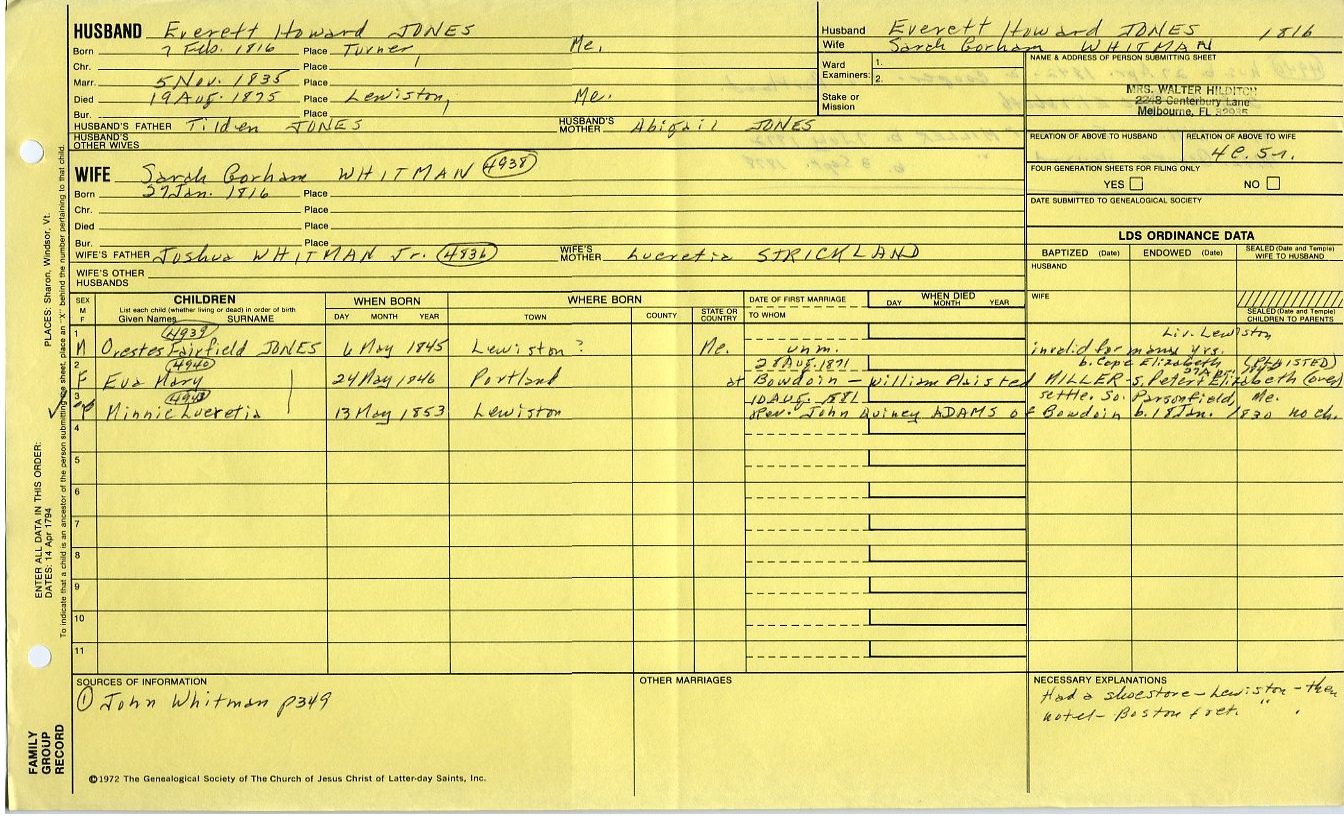 HUSBAND Everett Howard JONES
Born 7 Feb. 1816 Place Turner, Me.
Chr. Place
Marr. 5 Nov. 1835 Place
Died 19 Aug. 1875 Place Lewiston, Me.
Bur. Place
HUSBAND'S FATHER Tilden JONES HUSBAND'S MOTHER Abigail JONES
HUSBAND'S OTHER WIVES
WIFE Sarah Gorham WHITMAN 4938
Born 27 Jan. 1816 Place
Chr. Place
Died Place
Bur. Place
WIFE'S FATHER Joshua WHITMAN Jr. 4936 WIFE'S MOTHER Lucretia STRICKLAND
WIFE'S OTHER HUSBANDS
Husband Everett Howard JONES 1816
Wife Sarah Gorham WHITMAN
Ward Examiners: 1.
2.
Stake or Mission
NAME & ADDRESS OF PERSON SUBMITTING SHEET
MRS. WALTER HILDITCH
2248 Canterbury Lane
Melbourne, FL 32935
RELATION OF ABOVE TO HUSBAND RELATION OF ABOVE TO WIFE
4c. 5r.
FOUR GENERATION SHEETS FOR FILING ONLY
YES NO
DATE SUBMITTED TO GENEALOGICAL SOCIETY
LDS ORDINANCE DATA
BAPTIZED (Date) ENDOWED (Date) SEALED (Date and Temple) WIFE TO HUSBAND
HUSBAND
WIFE
SEALED (Date and Temple) CHILDREN TO PARENTS
SEX M F CHILDREN WHEN BORN WHERE BORN DATE OF FIRST MARRIAGE WHEN DIED
List each child (whether living or dead) in order of birth
Given Names SURNAME DAY MONTH YEAR TOWN COUNTY STATE OR COUNTRY TO WHOM DAY MONTH YEAR
4939 Liv. Lewiston
1 M Orestes Fairfield JONES 6 May 1845 Lewiston ? Me. unm. invalid for many yrs.
4940 28 Aug. 1871 b. Cape Elizabeth (PLAISTED)
2 F Eva Mary 24 May 1846 Portland at Bowdoin - William Plaisted MILLER - s. Peter & Elizabeth (over)
10 Aug. 1881 settle. So. Parsonfield, Me.
3 F Minnie Lucretia 13 May 1853 Lewiston Rev. John Quincy ADAMS of Bowdoin b. 18 Jan. 1830 no ch.
4
5
6
7
8
9
10
11
SOURCES OF INFORMATION
① John Whitman p349
OTHER MARRIAGES
NECESSARY EXPLANATIONS
Had a shoestore - Lewiston - then
hotel - Boston & ret. "
©1972 The Genealogical Society of The Church of Jesus Christ of Latter-day Saints, Inc.
FAMILY GROUP RECORD
ENTER ALL DATA IN THIS ORDER:
DATES: 14 Apr 1794
PLACES: Sharon, Windsor, Vt.
To indicate that a child is an ancestor of the person submitting the sheet, place an "X" behind the number pertaining to that child.